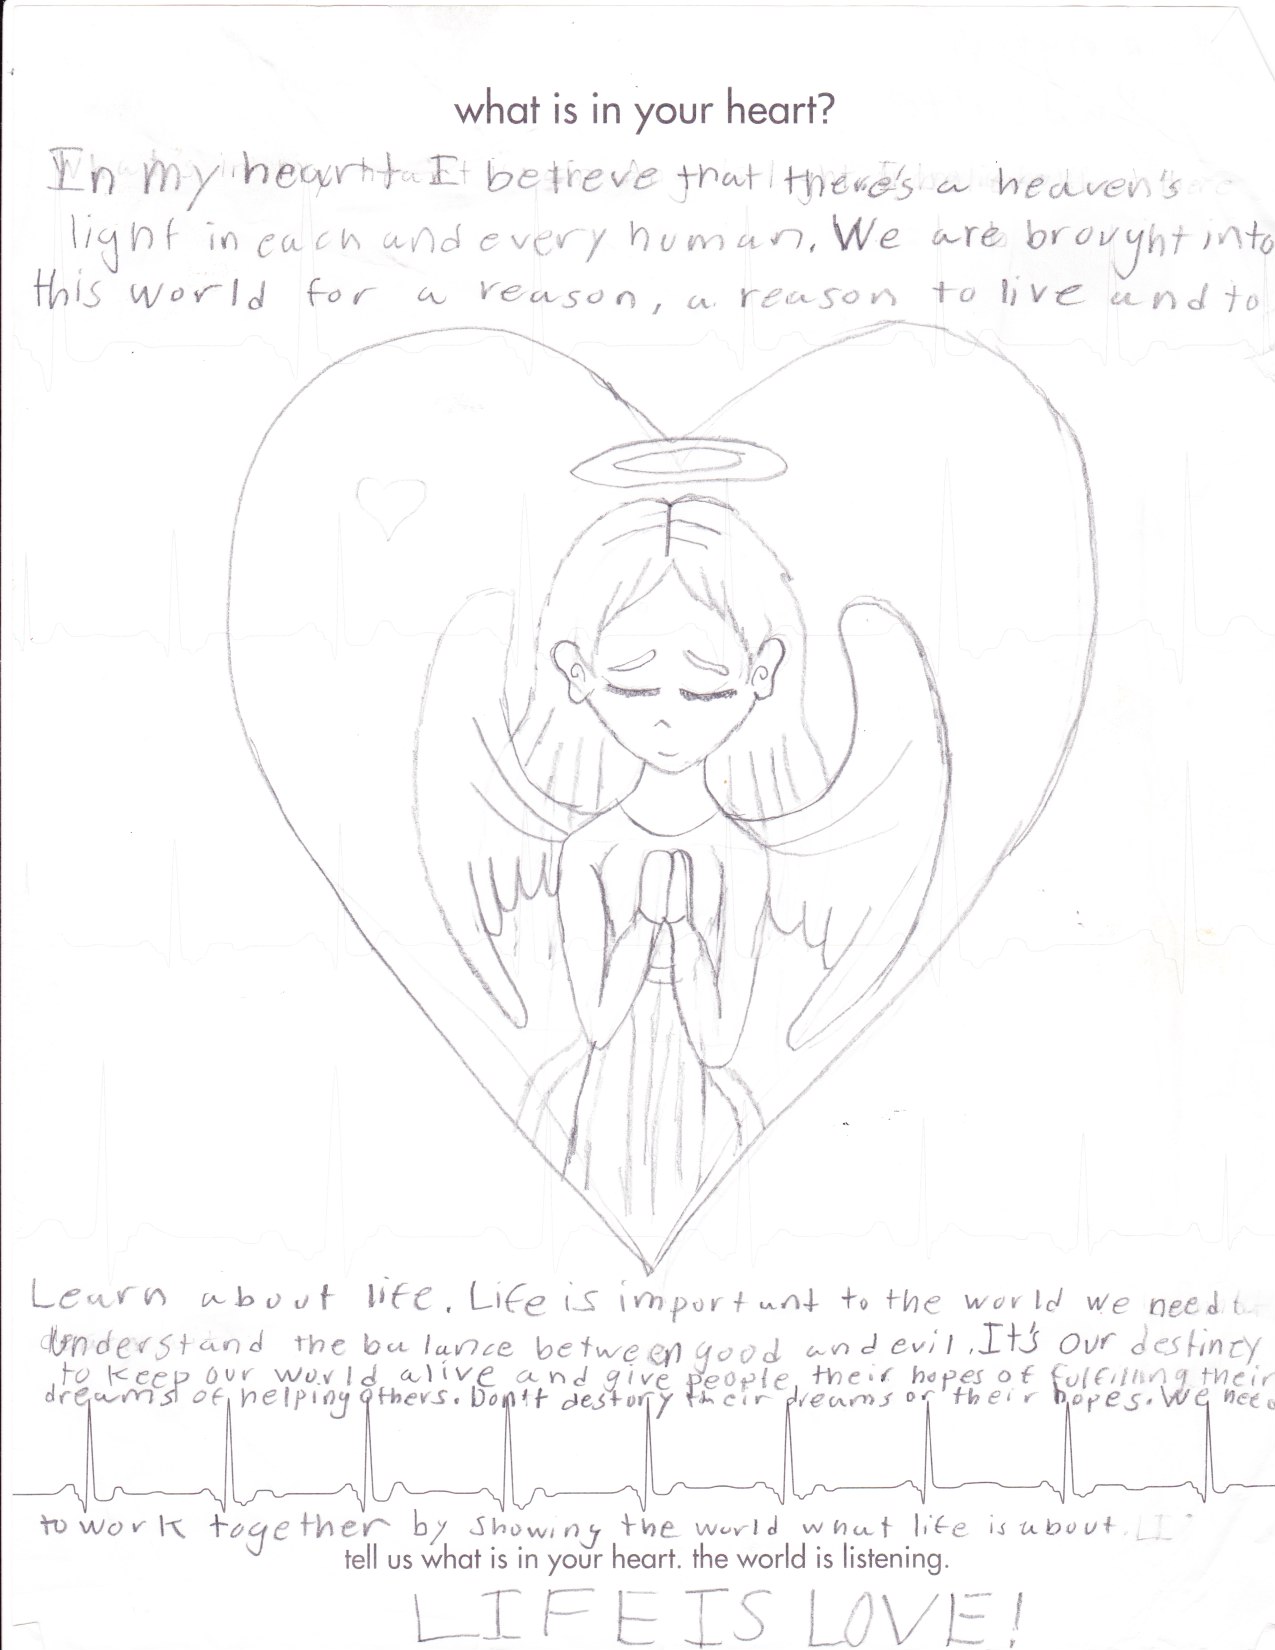 what is in your heart?
In my heart I believe that there's a heaven's
light in each and every human. We are brought into
this world for a reason, a reason to live and to
Learn about life. Life is important to the world we need to
understand the balance between good and evil. It's our destiny
to keep our world alive and give people their hopes of fulfilling their
dreams of helping others. Don't destory their dreams or their hopes. We need
to work together by showing the world what life is about.
tell us what is in your heart. the world is listening.
LIFE IS LOVE!